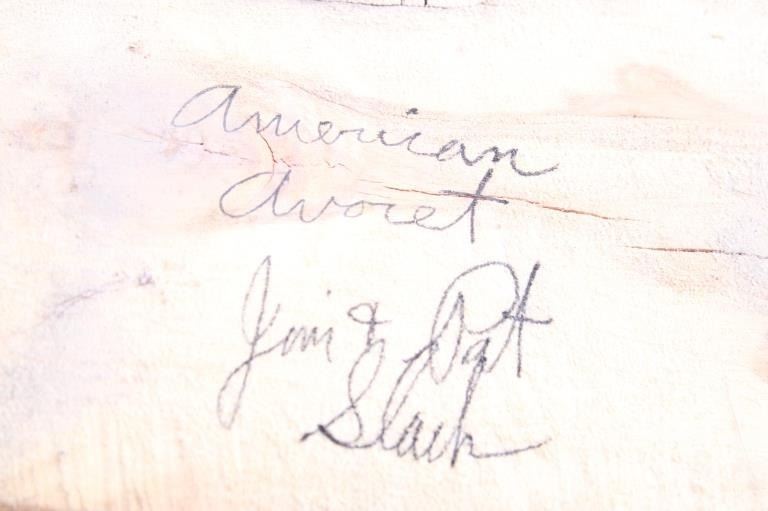 American
Avocet
Jim & Pat
Slack